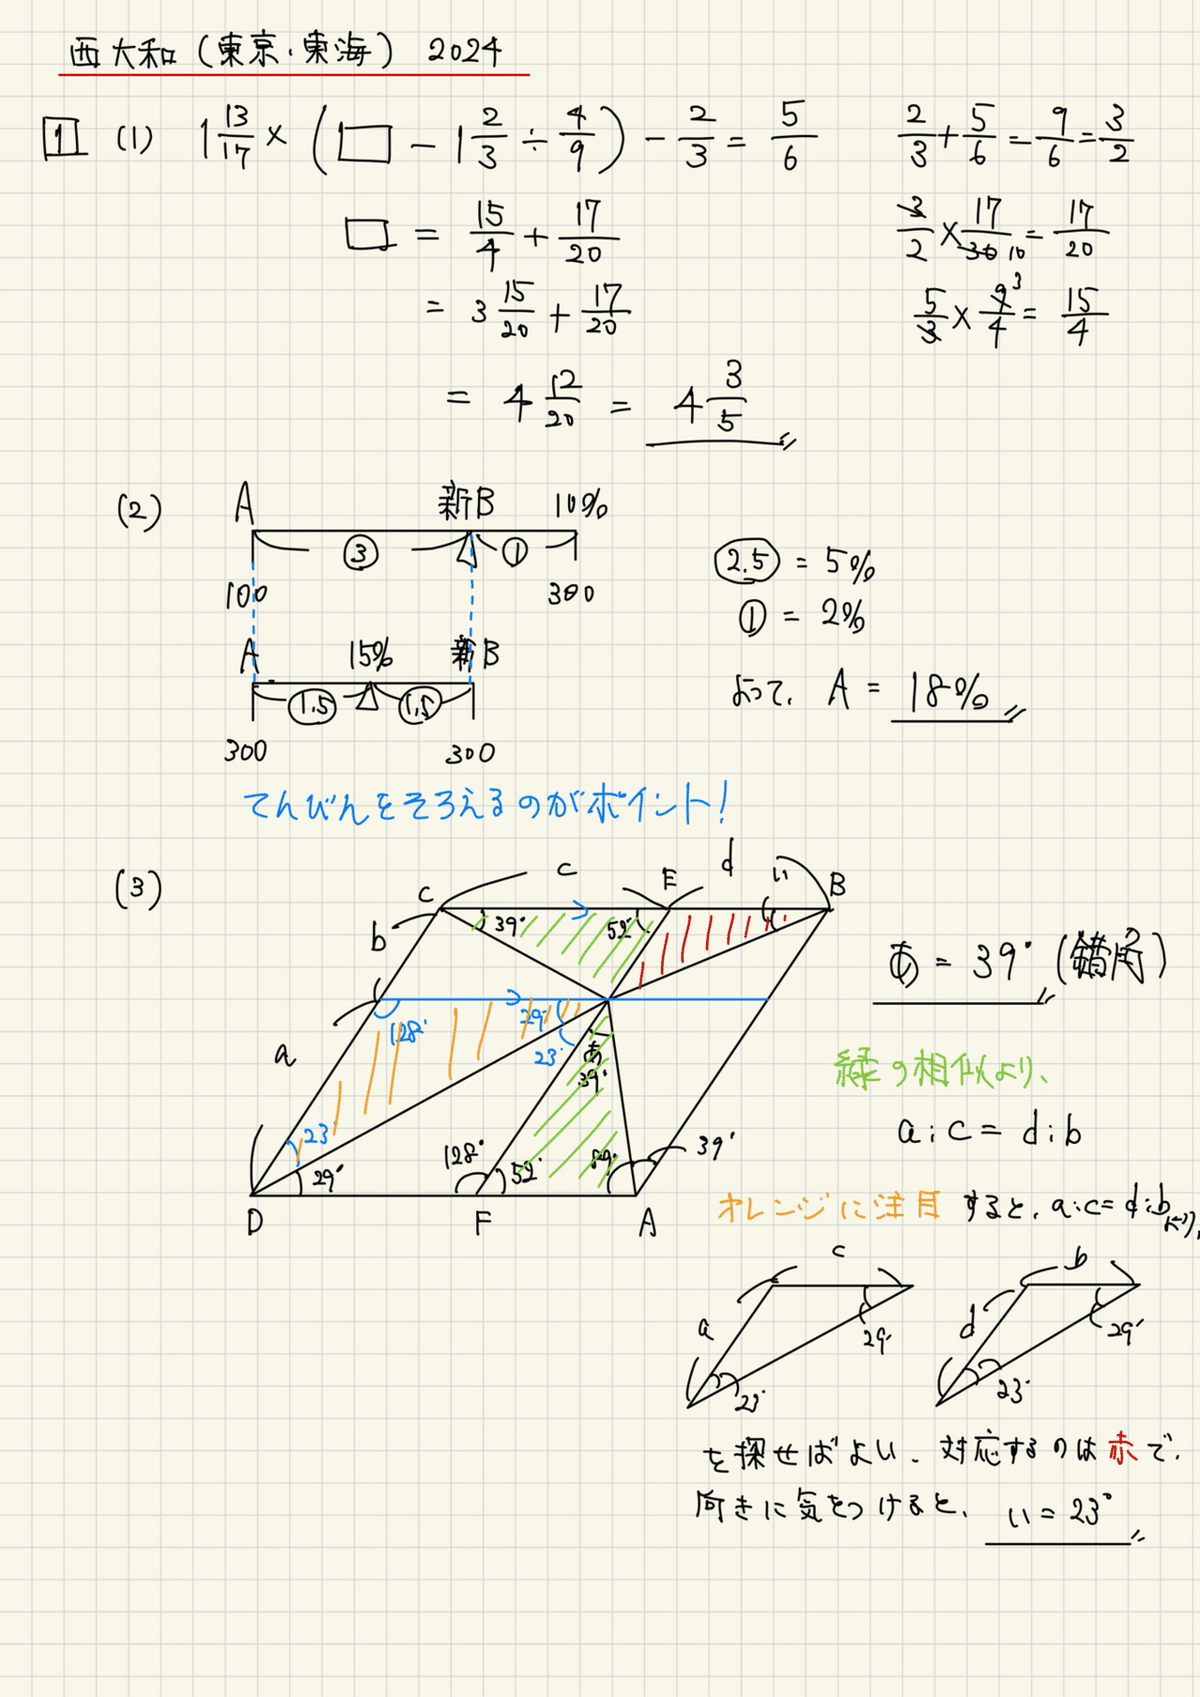 西大和(東京・東海) 2024
1 (1) 1 13/17 × (□ - 1 2/3 ÷ 4/9) - 2/3 = 5/6
2/3 + 5/6 = 9/6 = 3/2
□ = 15/4 + 17/20
3/2 × 17/30 10 = 17/20
= 3 15/20 + 17/20
5/3 × 9/4 3 = 15/4
= 4 12/20 = 4 3/5
(2) A 新B 10%
③ ①
100 300
A 15% 新B
1.5 1.5
300 300
2.5 = 5%
① = 2%
よって、A = 18%
てんびんをそろえるのがポイント!
(3) C c E d い B
b 39° 52°
a 128° 29° 23° あ 39°
23 29° 128° 52° 89° 39°
D F A
あ = 39° (錯角)
緑の相似より、
a:c = d:b
オレンジに注目すると、a:c=d:bより、
c a 29° 23°
b d 29° 23°
を探せばよい。対応するのは赤で、
向きに気をつけると、い = 23°